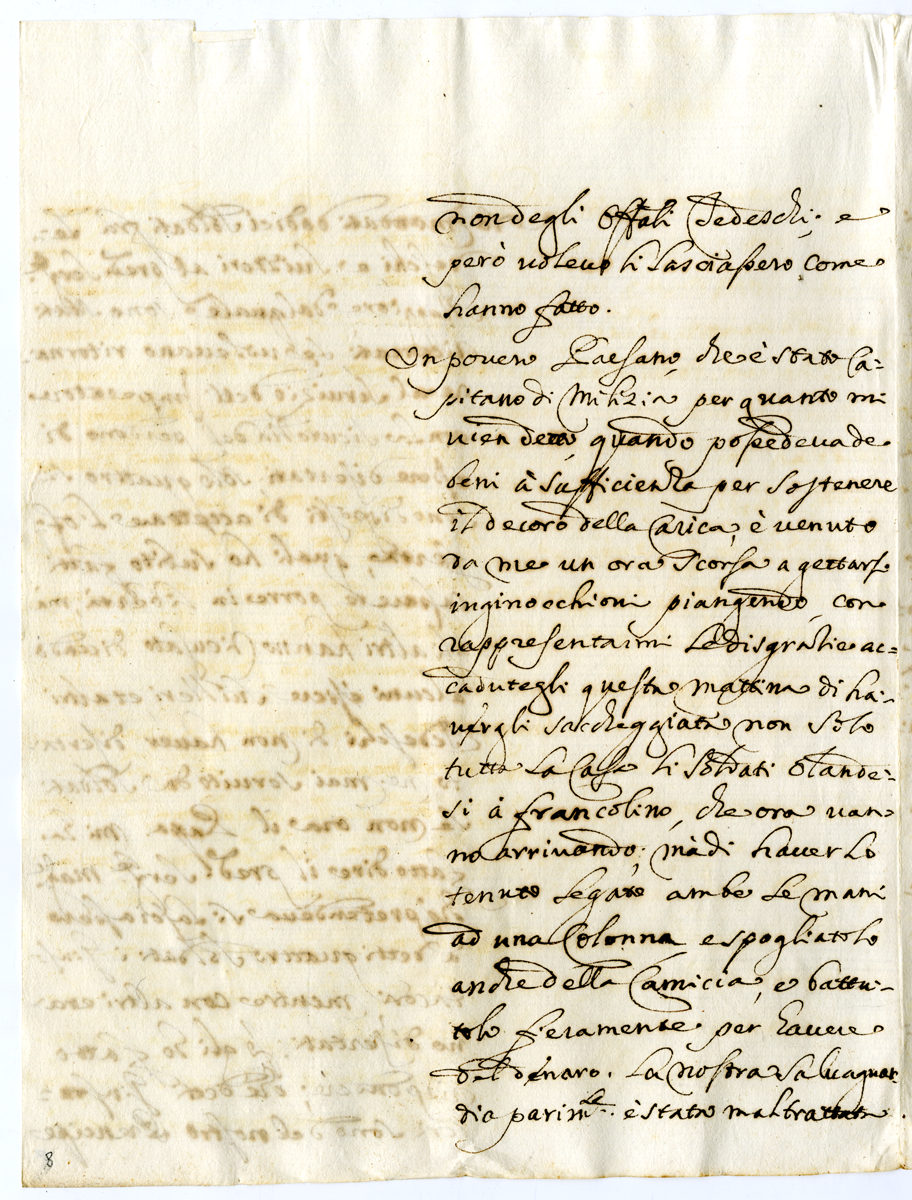 non degli Offali Tedeschi; e
però voleuo li lasciassero, come
hanno fatto.
Un pouero Paesano, che è stato Ca=
pitano di Milizia, per quanto mi
uien detto, quando possedeua de
beni à sufficienza per sostenere
il decoro della Carica, è venuto
da me un ora scorsa a gettarsi
inginocchioni piangendo, con
rappresentarmi le disgratie ac=
cadutegli questa mattina di ha=
uergli saccheggiata non solo
tutta la Casa li Soldati Olande=
si à Francolino, che ora uan=
no arriuando; mà di hauerlo
tenuto legato ambe le mani
ad una Colonna e spogliatolo
anche della Camicia, e battu=
tolo fieramente per hauere
del denaro. La nostra Saluaguar=
dia parim.te è stata maltrattata.
8